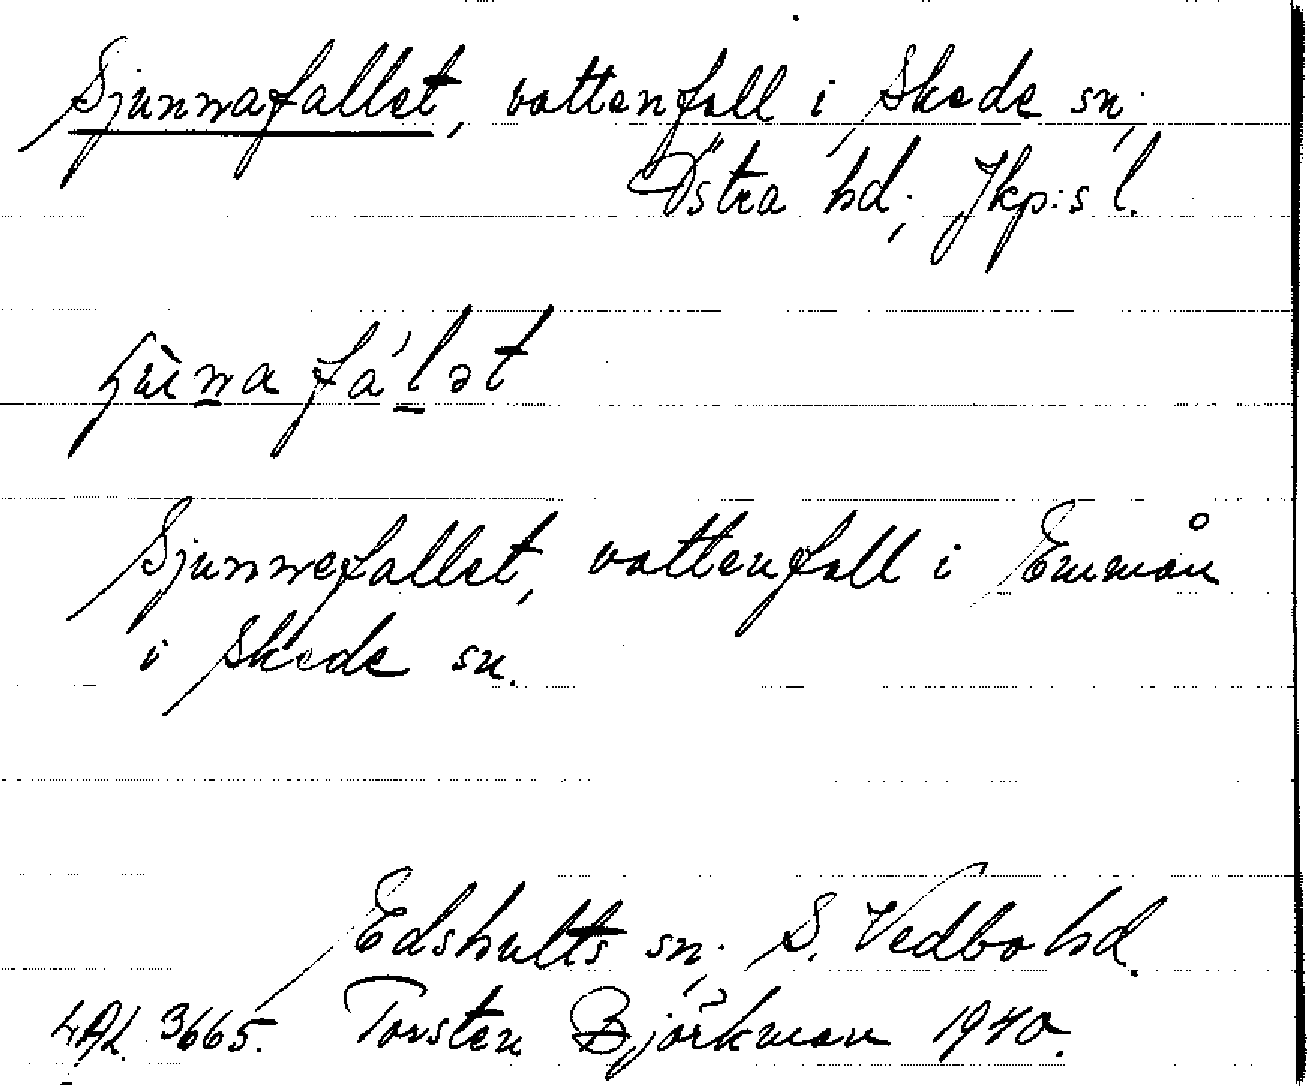 Sjunnafallet, vattenfall i Skede sn;
Östra hd; Jkp:s l.
fá'lət
Sjunnefallet, vattenfall i Emmån
i Skede sn.
Edshults sn; S. Vedbo hd.
LAL 3665. Torsten Björkman 1940.